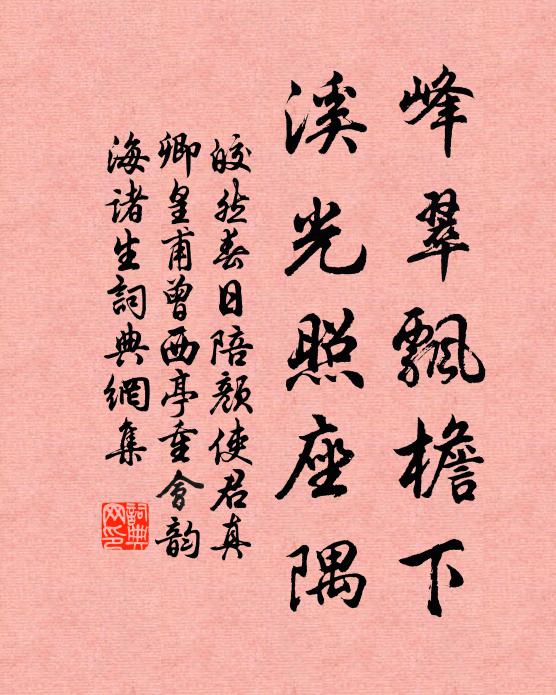 峰翠飄檐下
溪光照座隅
皎然春日陪顏使君真
卿皇甫曾西亭重會韵
海諸生詞典網集
詞典網印